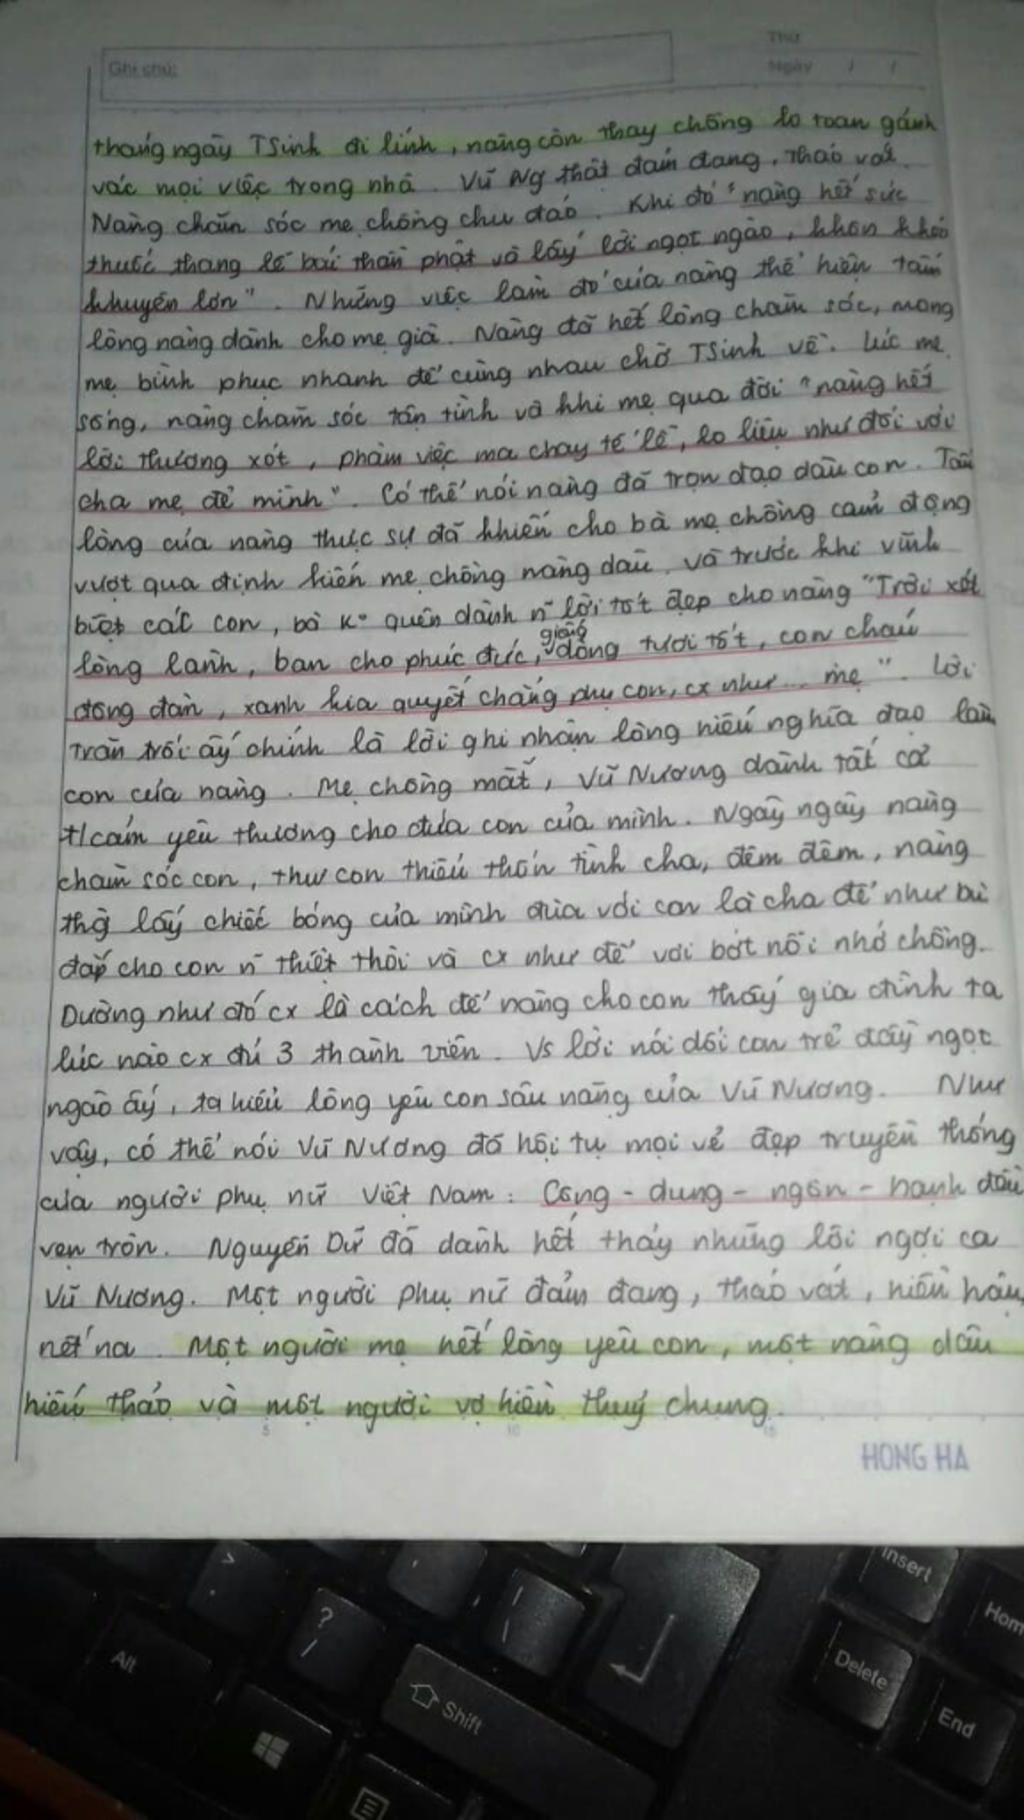 Thứ
Ghi chú: Ngày / /
tháng ngày TSinh đi lính, nàng còn thay chồng lo toan gánh
vác mọi việc trong nhà. Vũ Ng thật đảm đang, tháo vát.
Nàng chăm sóc mẹ chồng chu đáo. Khi đó "nàng hết sức
thuốc thang lễ bái thần phật và lấy lời ngọt ngào, khôn khéo
khuyên lơn". Những việc làm đó của nàng thể hiện tấm
lòng nàng dành cho mẹ già. Nàng đã hết lòng chăm sóc, mong
mẹ bình phục nhanh để cùng nhau chờ TSinh về. Lúc mẹ
sống, nàng chăm sóc tận tình và khi mẹ qua đời "nàng hết
lời thương xót, phàm việc ma chay tế lễ, lo liệu như đối với
cha mẹ đẻ mình". Có thể nói nàng đã trọn đạo dâu con. Tấm
lòng của nàng thực sự đã khiến cho bà mẹ chồng cảm động
vượt qua định kiến mẹ chồng nàng dâu và trước khi vĩnh
biệt các con, bà k° quên dành n~ lời tốt đẹp cho nàng "Trời xét
lòng lành, ban cho phúc đức, giống dòng tươi tốt, con cháu
đông đàn, xanh kia quyết chẳng phụ con, cx như... mẹ". Lời
trăn trối ấy chính là lời ghi nhận lòng hiếu nghĩa đạo làm
con của nàng. Mẹ chồng mất, Vũ Nương dành tất cả
t/cảm yêu thương cho đứa con của mình. Ngày ngày nàng
chăm sóc con, thư con thiếu thốn tình cha, đêm đêm, nàng
thg lấy chiếc bóng của mình đùa với con là cha để như bù
đắp cho con n~ thiệt thòi và cx như để vơi bớt nỗi nhớ chồng.
Dường như đó cx là cách để nàng cho con thấy gia đình ta
lúc nào cx đủ 3 thành viên. Vs lời nói dối con trẻ đầy ngọt
ngào ấy, ta hiểu lòng yêu con sâu nặng của Vũ Nương. Như
vậy, có thể nói Vũ Nương đã hội tụ mọi vẻ đẹp truyền thống
của người phụ nữ Việt Nam: Công - dung - ngôn - hạnh đều
vẹn tròn. Nguyễn Dữ đã dành hết thảy những lời ngợi ca
Vũ Nương. Một người phụ nữ đảm đang, tháo vát, hiền hậu,
nết na. Một người mẹ hết lòng yêu con, một nàng dâu
hiếu thảo và một người vợ hiền thuỷ chung.
5 10 15
HONG HA
Insert
Home
Delete
End
Alt
Shift
> .
? /